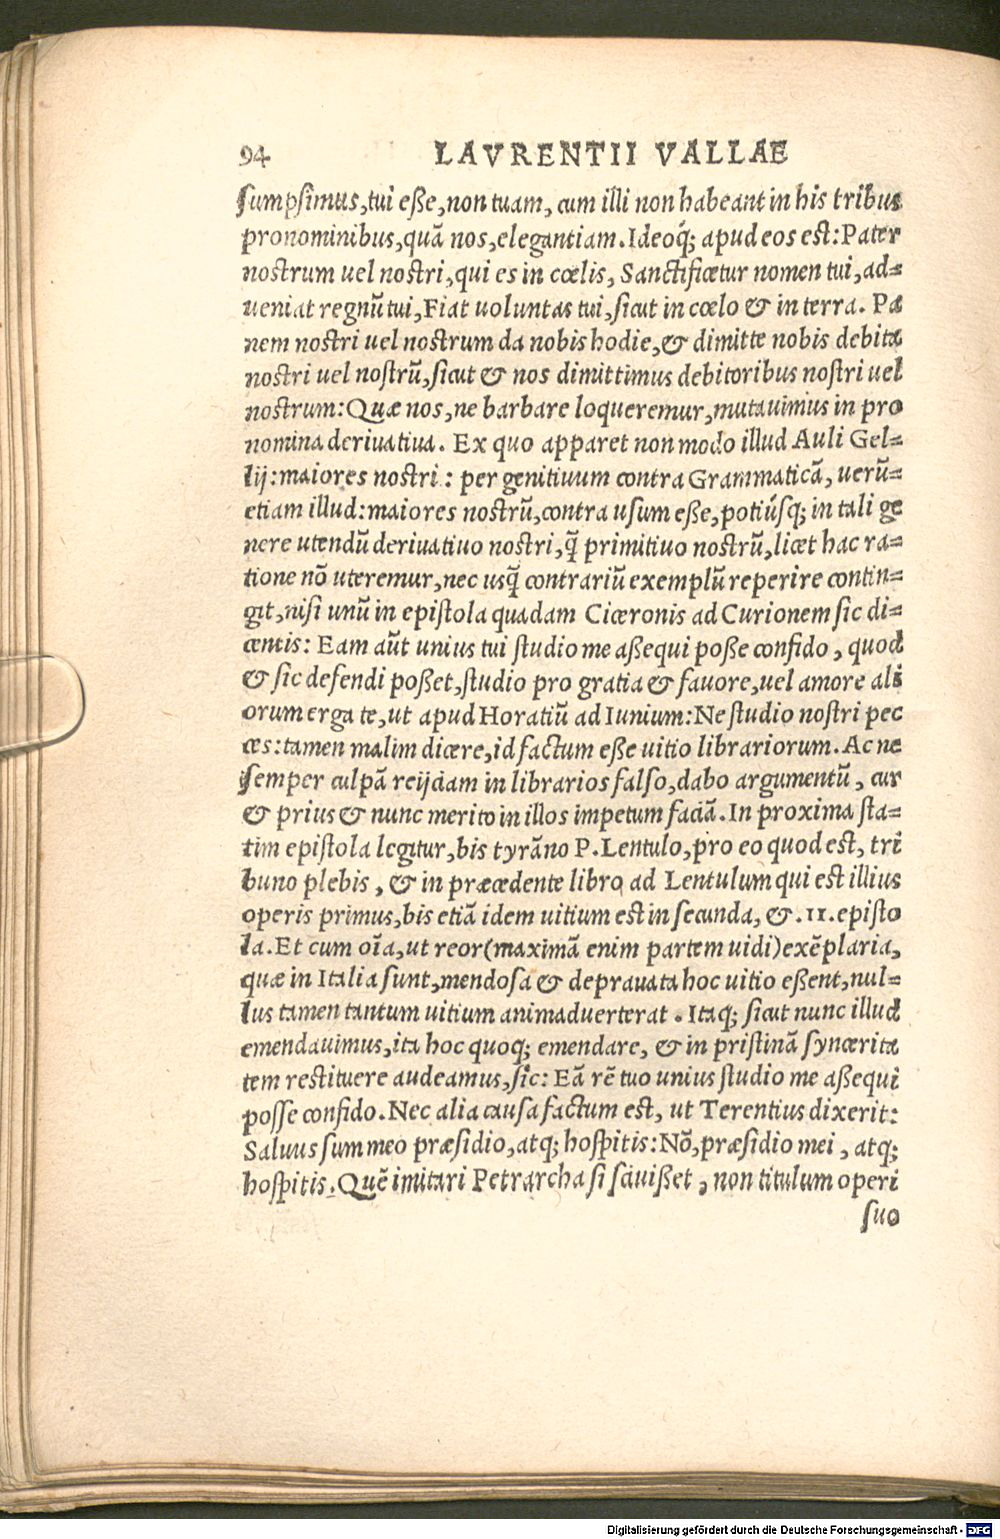 94 LAVRENTII VALLAE
sumpsimus, tui esse, non tuam, cum illi non habeant in his tribus
pronominibus, quã nos, elegantiam. Ideoq́; apud eos est: Pater
nostrum uel nostri, qui es in cœlis, Sanctificetur nomen tui, ad=
ueniat regnũ tui, Fiat uoluntas tui, sicut in cœlo & in terra. Pa
nem nostri uel nostrum da nobis hodie, & dimitte nobis debita
nostri uel nostrũ, sicut & nos dimittimus debitoribus nostri uel
nostrum: Quæ nos, ne barbare loqueremur, mutauimus in pro
nomina deriuatiua. Ex quo apparet non modo illud Auli Gel=
lij: maiores nostri: per genitiuum contra Grammaticã, uerũ=
etiam illud: maiores nostrũ, contra usum esse, potiúsq; in tali ge
nere utendũ deriuatiuo nostri, q̃ primitiuo nostrũ, licet hac ra=
tione nõ uteremur, nec usq̃ contrariũ exemplũ reperire contin=
git, nisi unũ in epistola quadam Ciceronis ad Curionem sic di=
centis: Eam aũt unius tui studio me assequi posse confido, quod
& sic defendi posset, studio pro gratia & fauore, uel amore ali
orum erga te, ut apud Horatiũ ad Iunium: Ne studio nostri pec
ces: tamen malim dicere, id factum esse uitio librariorum. Ac ne
semper culpã reijciam in librarios falso, dabo argumentũ, cur
& prius & nunc merito in illos impetum faciã. In proxima sta=
tim epistola legitur, bis tyrãno P. Lentulo, pro eo quod est, tri
buno plebis, & in præcedente libro ad Lentulum qui est illius
operis primus, bis etiã idem uitium est in secunda, &. 11. episto
la. Et cum oĩa, ut reor (maximã enim partem uidi) exẽplaria,
quæ in Italia sunt, mendosa & deprauata hoc uitio essent, nul=
lus tamen tantum uitium animaduerterat. Itaq; sicut nunc illud
emendauimus, ita hoc quoq; emendare, & in pristinã syncerita
tem restituere audeamus, sic: Eã rẽ tuo unius studio me assequi
posse confido. Nec alia causa factum est, ut Terentius dixerit:
Saluus sum meo præsidio, atq; hospitis: Nõ, præsidio mei, atq;
hospitis. Quẽ imitari Petrarcha si sciuisset, non titulum operi
suo
Digitalisierung gefördert durch die Deutsche Forschungsgemeinschaft - DFG